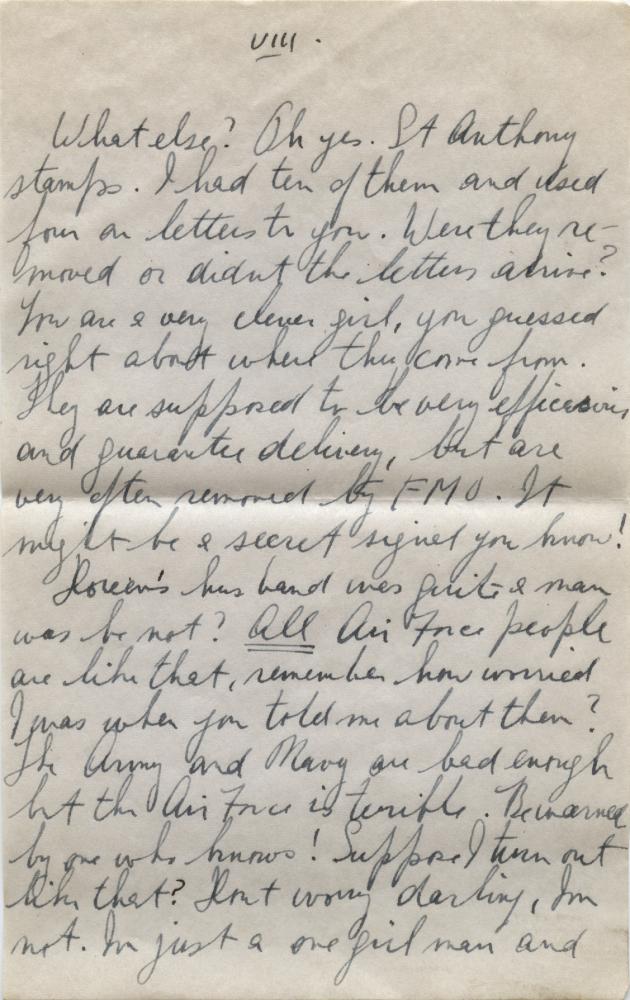 VIII .
What else? Oh yes. St Anthony
stamps. I had ten of them and used
four on letters to you. Were they re-
moved or didnt the letters arrive?
You are a very clever girl, you guessed
right about where they come from.
They are supposed to be very efficacious
and guarantee delivery, but are
very often removed by FMO. It
might be a secret signal you know!
Doreen's husband was quite a man
was he not? All Air Force people
are like that, remember how worried
I was when you told me about them?
The Army and Navy are bad enough
but the Air Force is terrible. Be warned
by one who knows! Suppose I turn out
like that? Dont worry darling, Im
not. Im just a one girl man and